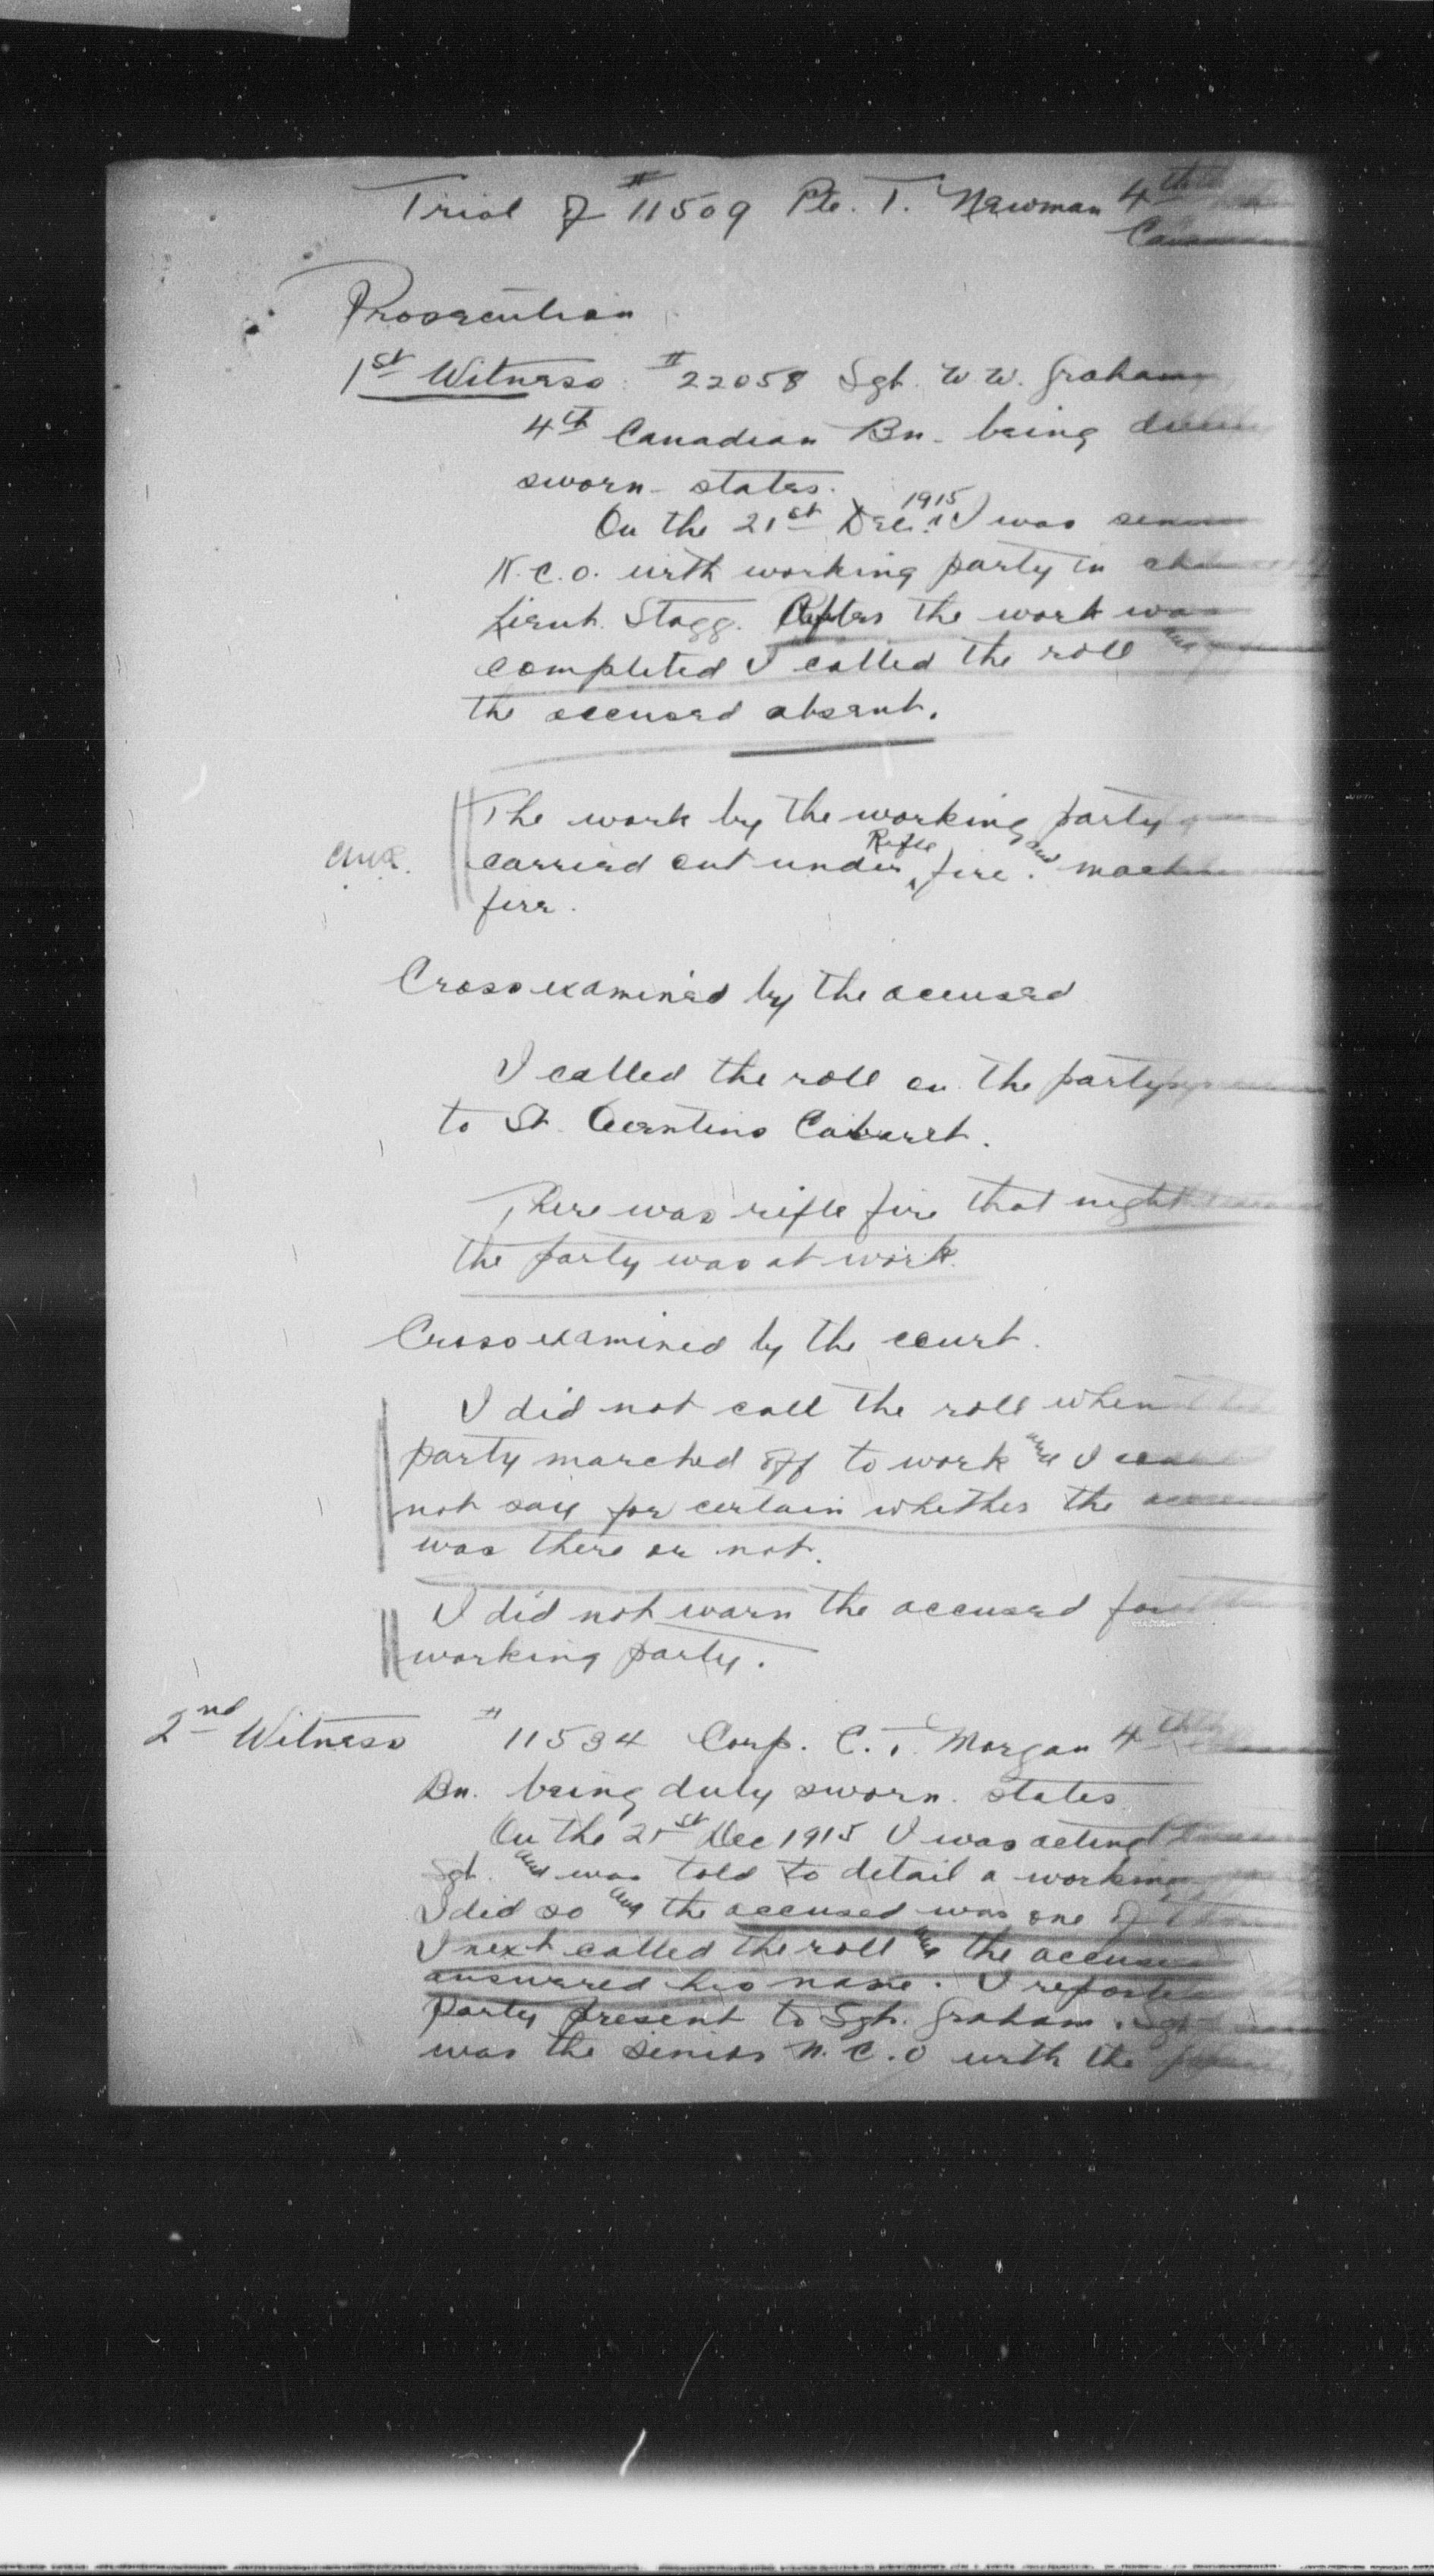 Trial of #11509 Pte. T. Newman 4th
Prosecution
1st Witness: #22058 Sgt. W W. Graham
4th Canadian Bn. being
sworn - states.
On the 21st Dec. 1915 I was
N.C.O. with working party in
Lieut. Stagg. After the work was
completed I called the roll and
the accused absent.
The work by the working party
carried out under Rifle fire. and
fire.
Cross examined by the accused
I called the roll on the party
to St. Quentins Cabaret.
There was rifle fire that night
the party was at work.
Cross examined by the court.
I did not call the roll when
party marched off to work and I
not say for certain whether the
was there or not.
I did not warn the accused for
working party.
2nd Witness #11534 Corp. C. T. Morgan 4th
Bn. being duly sworn. states
On the 21st Dec 1915 I was acting
Sgt. and was told to detail a working
I did so and the accused was one of
I next called the roll and the accused
answered his name. I reported
party present to Sgt. Graham. Sgt
was the senior N.C.O with the